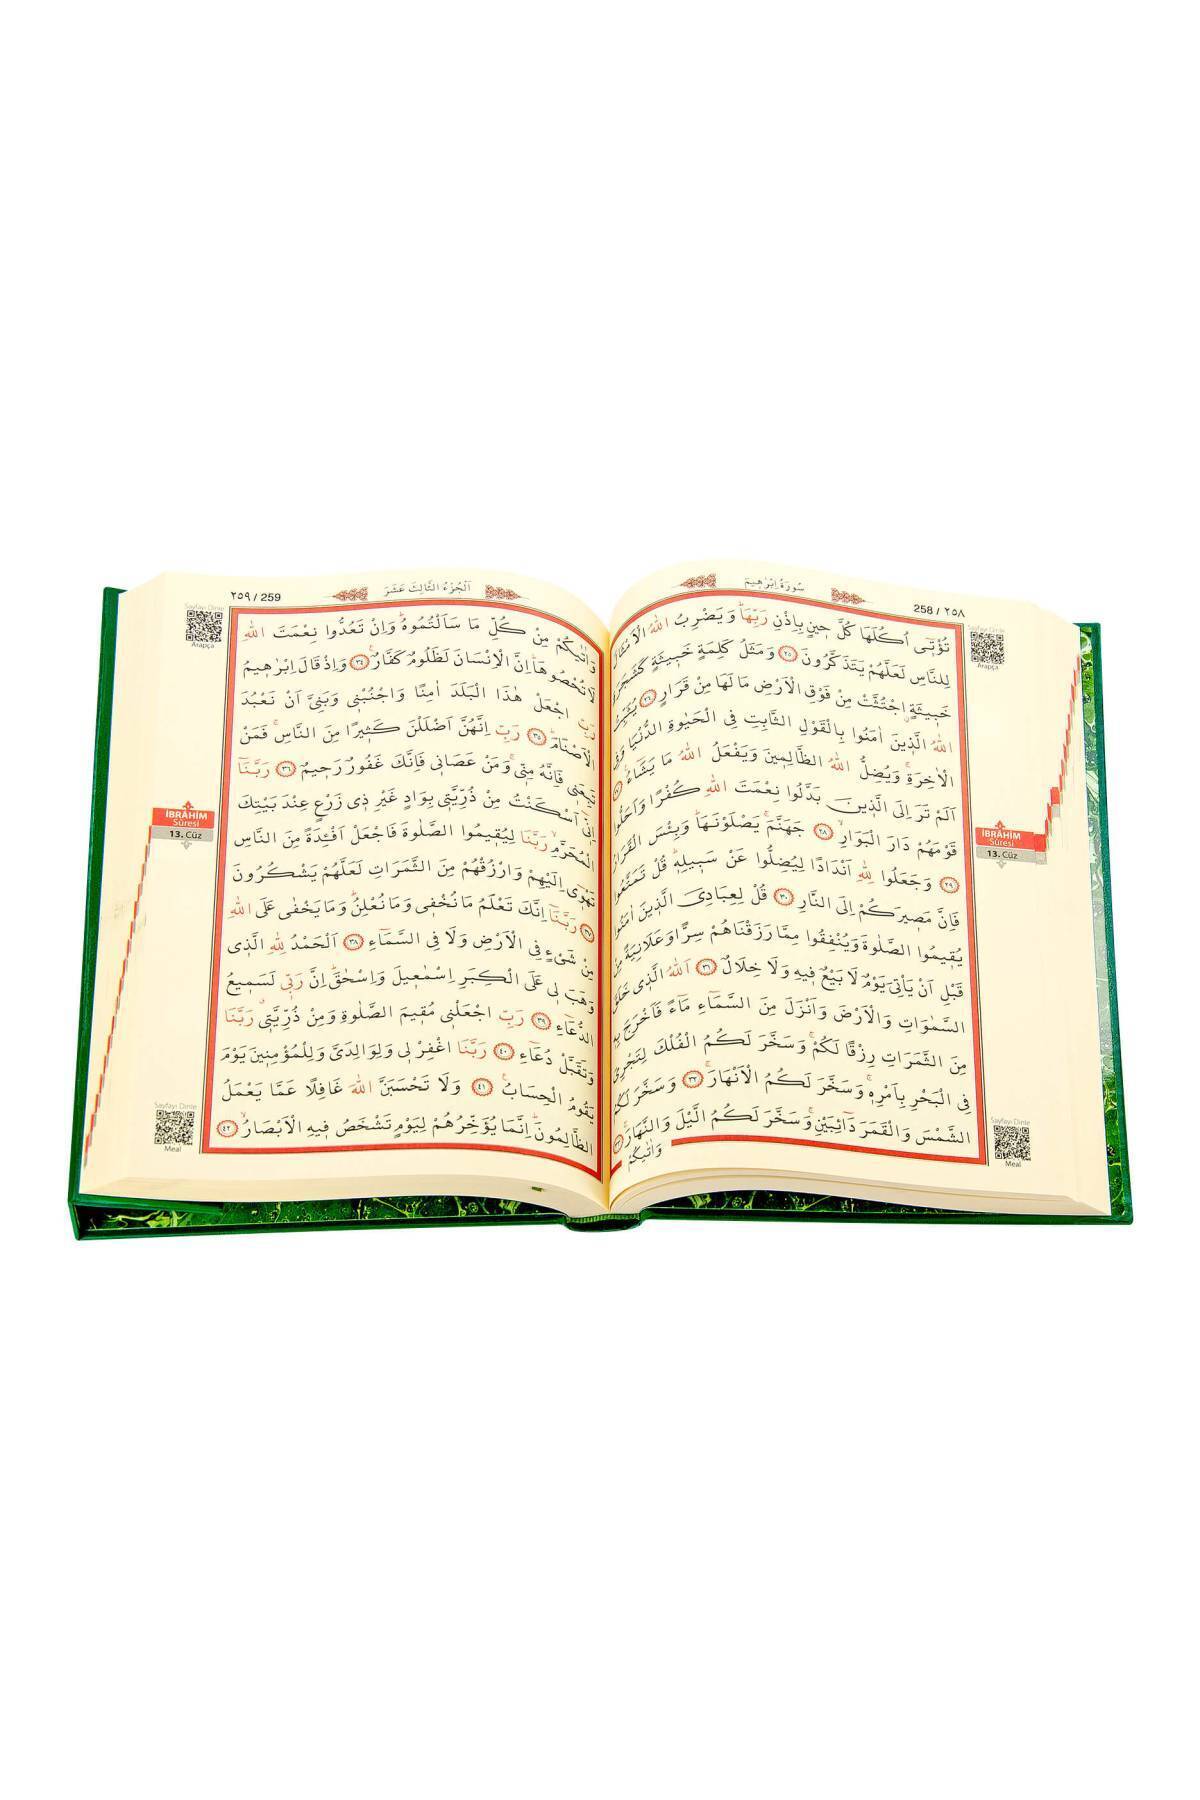 258 / ٢٥٨
سُورَةُ اِبْرٰهٖيمَ
تُؤْتٖٓى اُكُلَهَا كُلَّ حٖينٍ بِاِذْنِ رَبِّهَاۜ وَيَضْرِبُ اللّٰهُ الْاَمْثَالَ
لِلنَّاسِ لَعَلَّهُمْ يَتَذَكَّرُونَ ﴿٢٥﴾ وَمَثَلُ كَلِمَةٍ خَبٖيثَةٍ كَشَجَرَةٍ
خَبٖيثَةٍۨ اجْتُثَّتْ مِنْ فَوْقِ الْاَرْضِ مَا لَهَا مِنْ قَرَارٍ ﴿٢٦﴾ يُثَبِّتُ
اللّٰهُ الَّذٖينَ اٰمَنُوا بِالْقَوْلِ الثَّابِتِ فِى الْحَيٰوةِ الدُّنْيَا وَفِى
الْاٰخِرَةِۚ وَيُضِلُّ اللّٰهُ الظَّالِمٖينَ وَيَفْعَلُ اللّٰهُ مَا يَشَٓاءُ۟
اَلَمْ تَرَ اِلَى الَّذٖينَ بَدَّلُوا نِعْمَتَ اللّٰهِ كُفْرًا وَاَحَلُّوا
قَوْمَهُمْ دَارَ الْبَوَارِۙ ﴿٢٨﴾ جَهَنَّمَۚ يَصْلَوْنَهَاۜ وَبِئْسَ الْقَرَارُ
﴿٢٩﴾ وَجَعَلُوا لِلّٰهِ اَنْدَادًا لِيُضِلُّوا عَنْ سَبٖيلِهٖۜ قُلْ تَمَتَّعُوا
فَاِنَّ مَصٖيرَكُمْ اِلَى النَّارِ ﴿٣٠﴾ قُلْ لِعِبَادِىَ الَّذٖينَ اٰمَنُوا
يُقٖيمُوا الصَّلٰوةَ وَيُنْفِقُوا مِمَّا رَزَقْنَاهُمْ سِرًّا وَعَلَانِيَةً مِنْ
قَبْلِ اَنْ يَاْتِىَ يَوْمٌ لَا بَيْعٌ فٖيهِ وَلَا خِلَالٌ ﴿٣١﴾ اَللّٰهُ الَّذٖى خَلَقَ
السَّمٰوَاتِ وَالْاَرْضَ وَاَنْزَلَ مِنَ السَّمَٓاءِ مَٓاءً فَاَخْرَجَ بِهٖ
مِنَ الثَّمَرَاتِ رِزْقًا لَكُمْۚ وَسَخَّرَ لَكُمُ الْفُلْكَ لِتَجْرِىَ
فِى الْبَحْرِ بِاَمْرِهٖۚ وَسَخَّرَ لَكُمُ الْاَنْهَارَۚ ﴿٣٢﴾ وَسَخَّرَ لَكُمُ
الشَّمْسَ وَالْقَمَرَ دَٓائِبَيْنِۚ وَسَخَّرَ لَكُمُ الَّيْلَ وَالنَّهَارَۚ ﴿٣٣﴾
وَاٰتٰيكُمْ
Sayfayı Dinle
Arapça
İBRÂHİM
Sûresi
13. Cüz
Sayfayı Dinle
Meal
اَلْجُزْءُ الثَّالِثَ عَشَرَ
٢٥٩ / 259
وَاٰتٰيكُمْ مِنْ كُلِّ مَا سَاَلْتُمُوهُۜ وَاِنْ تَعُدُّوا نِعْمَتَ اللّٰهِ
لَا تُحْصُوهَاۜ اِنَّ الْاِنْسَانَ لَظَلُومٌ كَفَّارٌ۟ ﴿٣٤﴾ وَاِذْ قَالَ اِبْرٰهٖيمُ
رَبِّ اجْعَلْ هٰذَا الْبَلَدَ اٰمِنًا وَاجْنُبْنٖى وَبَنِىَّ اَنْ نَعْبُدَ
الْاَصْنَامَۜ ﴿٣٥﴾ رَبِّ اِنَّهُنَّ اَضْلَلْنَ كَثٖيرًا مِنَ النَّاسِۚ فَمَنْ
تَبِعَنٖى فَاِنَّهُ مِنّٖىۚ وَمَنْ عَصَانٖى فَاِنَّكَ غَفُورٌ رَحٖيمٌ ﴿٣٦﴾ رَبَّنَٓا
اِنّٖٓى اَسْكَنْتُ مِنْ ذُرِّيَّتٖى بِوَادٍ غَيْرِ ذٖى زَرْعٍ عِنْدَ بَيْتِكَ
الْمُحَرَّمِۙ رَبَّنَا لِيُقٖيمُوا الصَّلٰوةَ فَاجْعَلْ اَفْـِٔدَةً مِنَ النَّاسِ
تَهْوٖٓى اِلَيْهِمْ وَارْزُقْهُمْ مِنَ الثَّمَرَاتِ لَعَلَّهُمْ يَشْكُرُونَ
﴿٣٧﴾ رَبَّنَٓا اِنَّكَ تَعْلَمُ مَا نُخْفٖى وَمَا نُعْلِنُۜ وَمَا يَخْفٰى عَلَى اللّٰهِ
مِنْ شَیْءٍ فِى الْاَرْضِ وَلَا فِى السَّمَٓاءِ ﴿٣٨﴾ اَلْحَمْدُ لِلّٰهِ الَّذٖى
وَهَبَ لٖى عَلَى الْكِبَرِ اِسْمٰعٖيلَ وَاِسْحٰقَۜ اِنَّ رَبّٖى لَسَمٖيعُ
الدُّعَٓاءِ ﴿٣٩﴾ رَبِّ اجْعَلْنٖى مُقٖيمَ الصَّلٰوةِ وَمِنْ ذُرِّيَّتٖىۗ رَبَّنَا
وَتَقَبَّلْ دُعَٓاءِ ﴿٤٠﴾ رَبَّنَا اغْفِرْ لٖى وَلِوَالِدَىَّ وَلِلْمُؤْمِنٖينَ يَوْمَ
يَقُومُ الْحِسَابُ۟ ﴿٤١﴾ وَلَا تَحْسَبَنَّ اللّٰهَ غَافِلًا عَمَّا يَعْمَلُ
الظَّالِمُونَۜ اِنَّمَا يُؤَخِّرُهُمْ لِيَوْمٍ تَشْخَصُ فٖيهِ الْاَبْصَارُۙ ﴿٤٢﴾
Sayfayı Dinle
Arapça
İBRÂHİM
Sûresi
13. Cüz
Sayfayı Dinle
Meal